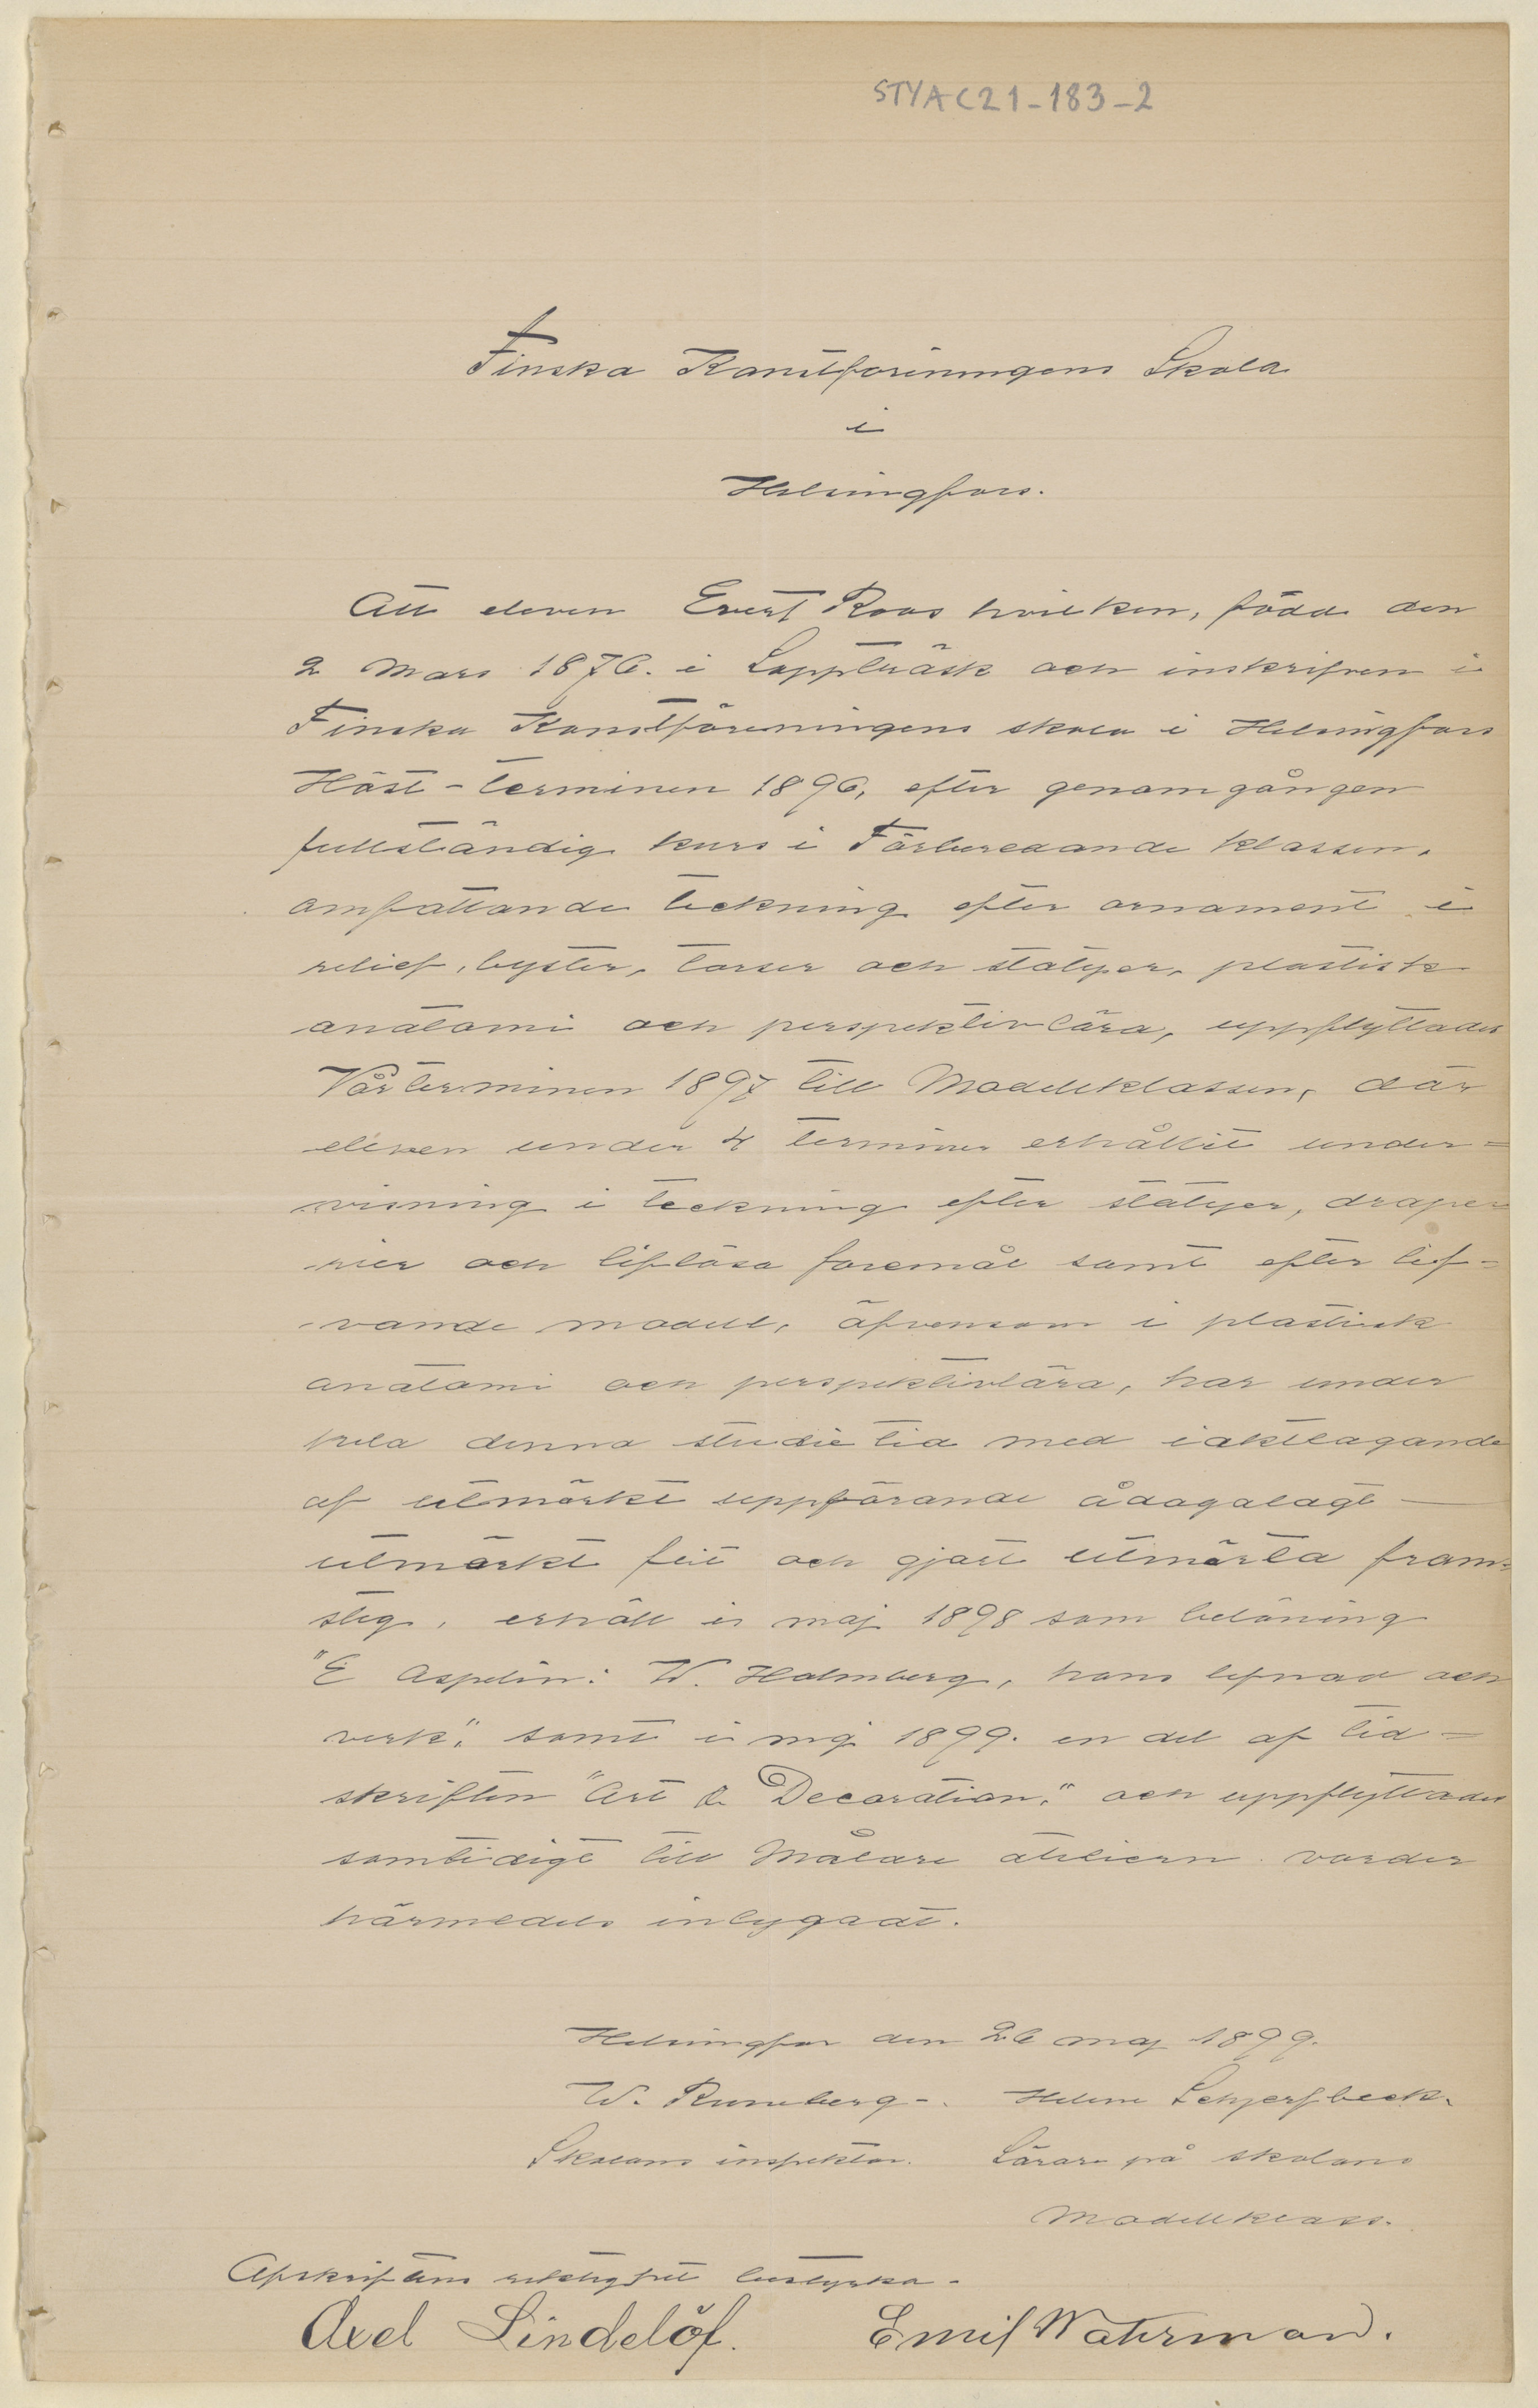 STYA C21-183-2
Finska Konstföreningens Skola
i
Helsingfors.
Att eleven Ernst Roos hvilken, född den
2 Mars 1876. i Lappträsk och inskrifven i
Finska Konstföreningens skola i Helsingfors
Höst-terminen 1896, efter genomgången
fullständig kurs i Förberedande klassen,
omfattande teckning efter ornament i
relief, byster, torser och statyer, plastisk
anatomi och perspektivlära, uppflyttades
Vårterminen 1897 till Modellklassen, där
eleven under 4 terminer erhållit under=
visning i teckning efter statyer, drape=
rier och liflösa foremål samt efter lef=
-vande modell, äfvensom i plastisk
anatomi och perspektivlära, har under
hela denna studietid med iakttagande
af utmärkt uppförande ådagalagt —
utmärkt flit och gjort utmärkta fram=
steg, erhöll i maj 1898 som belöning
"E Aspelin: W. Holmberg, hans lefnad och
verk", samt i maj 1899. en del af tid=
skriften "Art & Decoration," och uppflyttades
samtidigt till Målare atelieren. varder
härmedels intygadt.
Helsingfors den 26 maj 1899.
W. Runeberg-. Helene Schjerfbeck.
Skolans inspektor. Lärare på skolans
Modellklass.
Afskriftens riktighet bestyrka-
Axel Lindelöf. Emil Waterman.